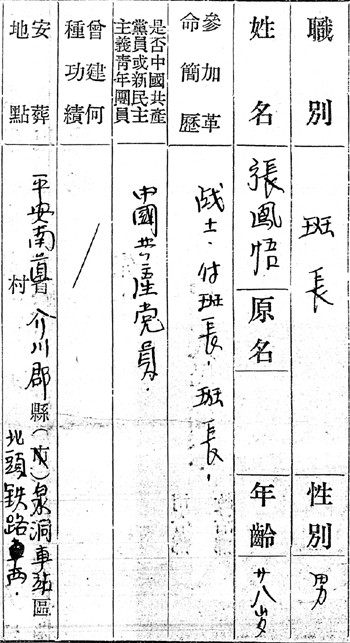 職別 班長 性別 男
姓名 張鳳悟 原名 年齡 廿八岁
參加革命簡歷 战士.付班長.班長.
是否中國共產黨員或新民主主義青年團員 中國共產党員.
曾建何種功績 /
安葬地點 平安南道 介川郡 縣(市)泉洞車站區
村 北頭铁路東西.